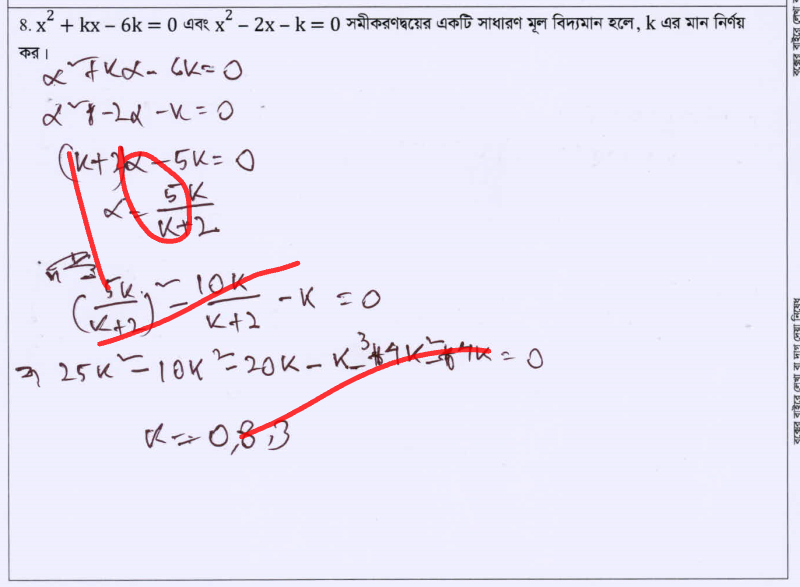 8. x² + kx − 6k = 0 এবং x² − 2x − k = 0 সমীকরণদ্বয়ের একটি সাধারণ মূল বিদ্যমান হলে, k এর মান নির্ণয়
কর।
α² + kα − 6k = 0
α² + −2α − k = 0
(k+2)α − 5k = 0
α = 5k/(k+2)
(5k/(k+2))² − 10k/(k+2) − k = 0
⇒ 25k² − 10k² − 20k − k³ − 4k² − 4k = 0
k = 0, 8, 3